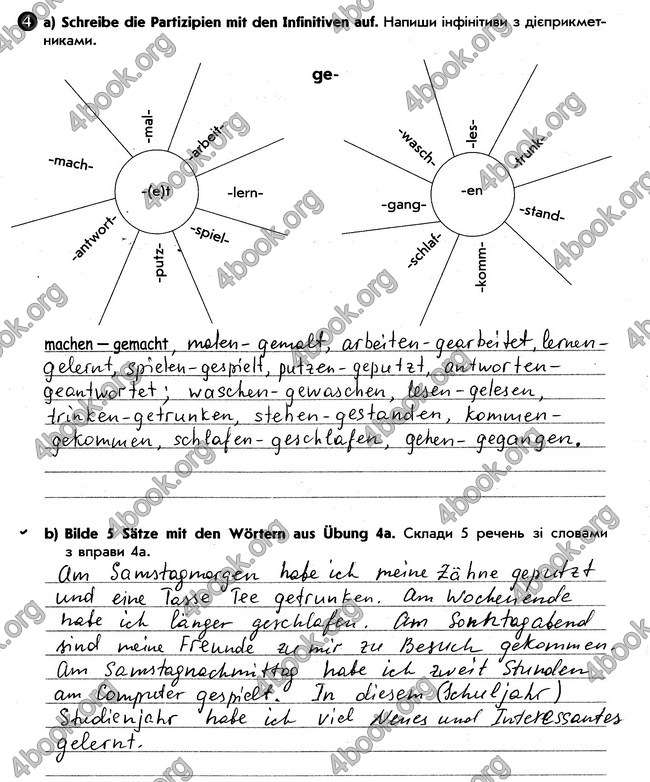 4 a) Schreibe die Partizipien mit den Infinitiven auf. Напиши інфінітиви з дієприкмет-
никами.
ge-
-mach-
-mal-
-arbeit-
-(e)t
-lern-
-spiel-
-putz-
-antwort-
-wasch-
-les-
-trunk-
-en
-gang-
-stand-
-schlaf-
-komm-
machen — gemacht, malen- gemalt, arbeiten-gearbeitet, lernen-
gelernt, spielen-gespielt, putzen-geputzt, antworten-
geantwortet; waschen-gewaschen, lesen-gelesen,
trinken-getrunken, stehen-gestanden, kommen-
gekommen, schlafen-geschlafen, gehen- gegangen.
b) Bilde 5 Sätze mit den Wörtern aus Übung 4a. Склади 5 речень зі словами
з вправи 4a.
Am Samstagmorgen habe ich meine Zähne geputzt
und eine Tasse Tee getrunken. Am Wochenende
habe ich länger geschlafen. Am Sonntagabend
sind meine Freunde zu mir zu Besuch gekommen.
Am Samstagnachmittag habe ich zweit Stunden
am Computer gespielt. In diesem (Schuljahr)
Studienjahr habe ich viel Neues und Interessantes
gelernt.
4book.org